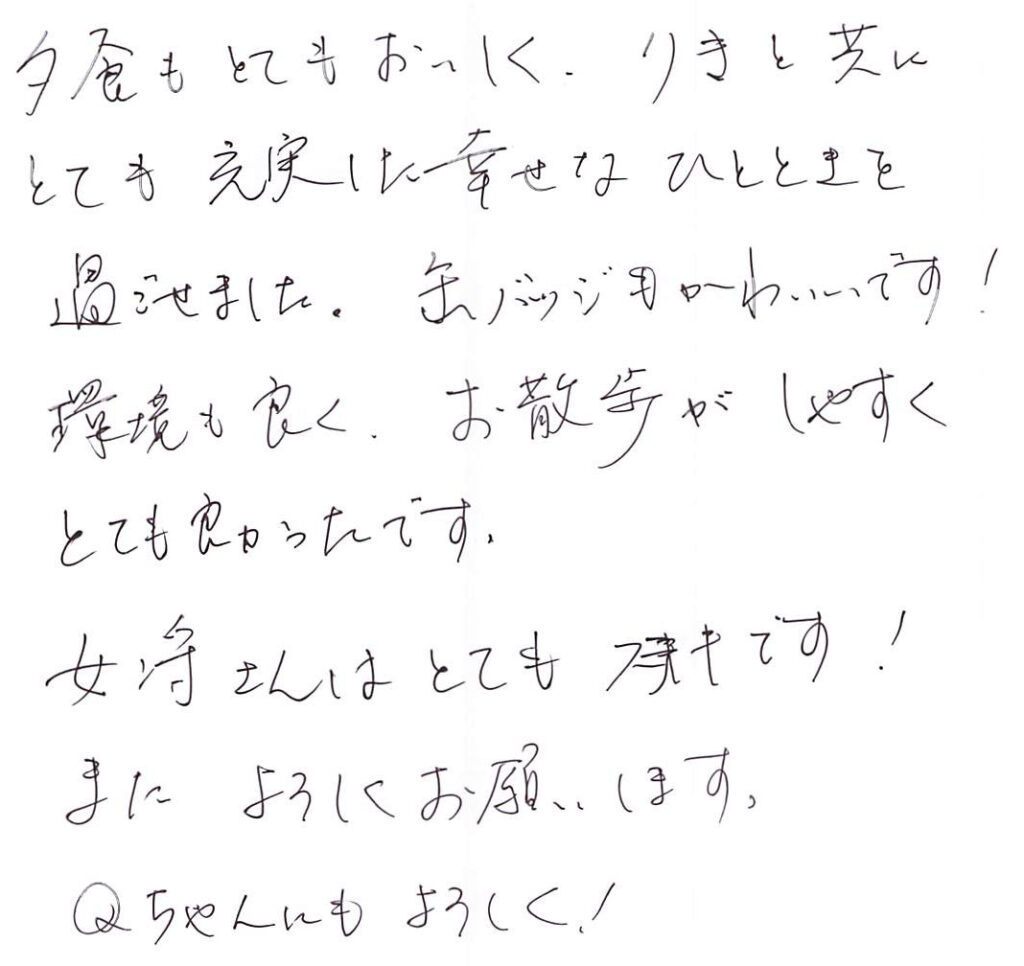 夕食もとてもおいしく、りきと共に
とても充実した幸せなひとときを
過ごせました。缶バッジもかーわいーいです！
環境も良く、お散歩がしやすく
とても良かったです。
女将さんはとても です！
またよろしくお願いします。
Qちゃんにもよろしく！